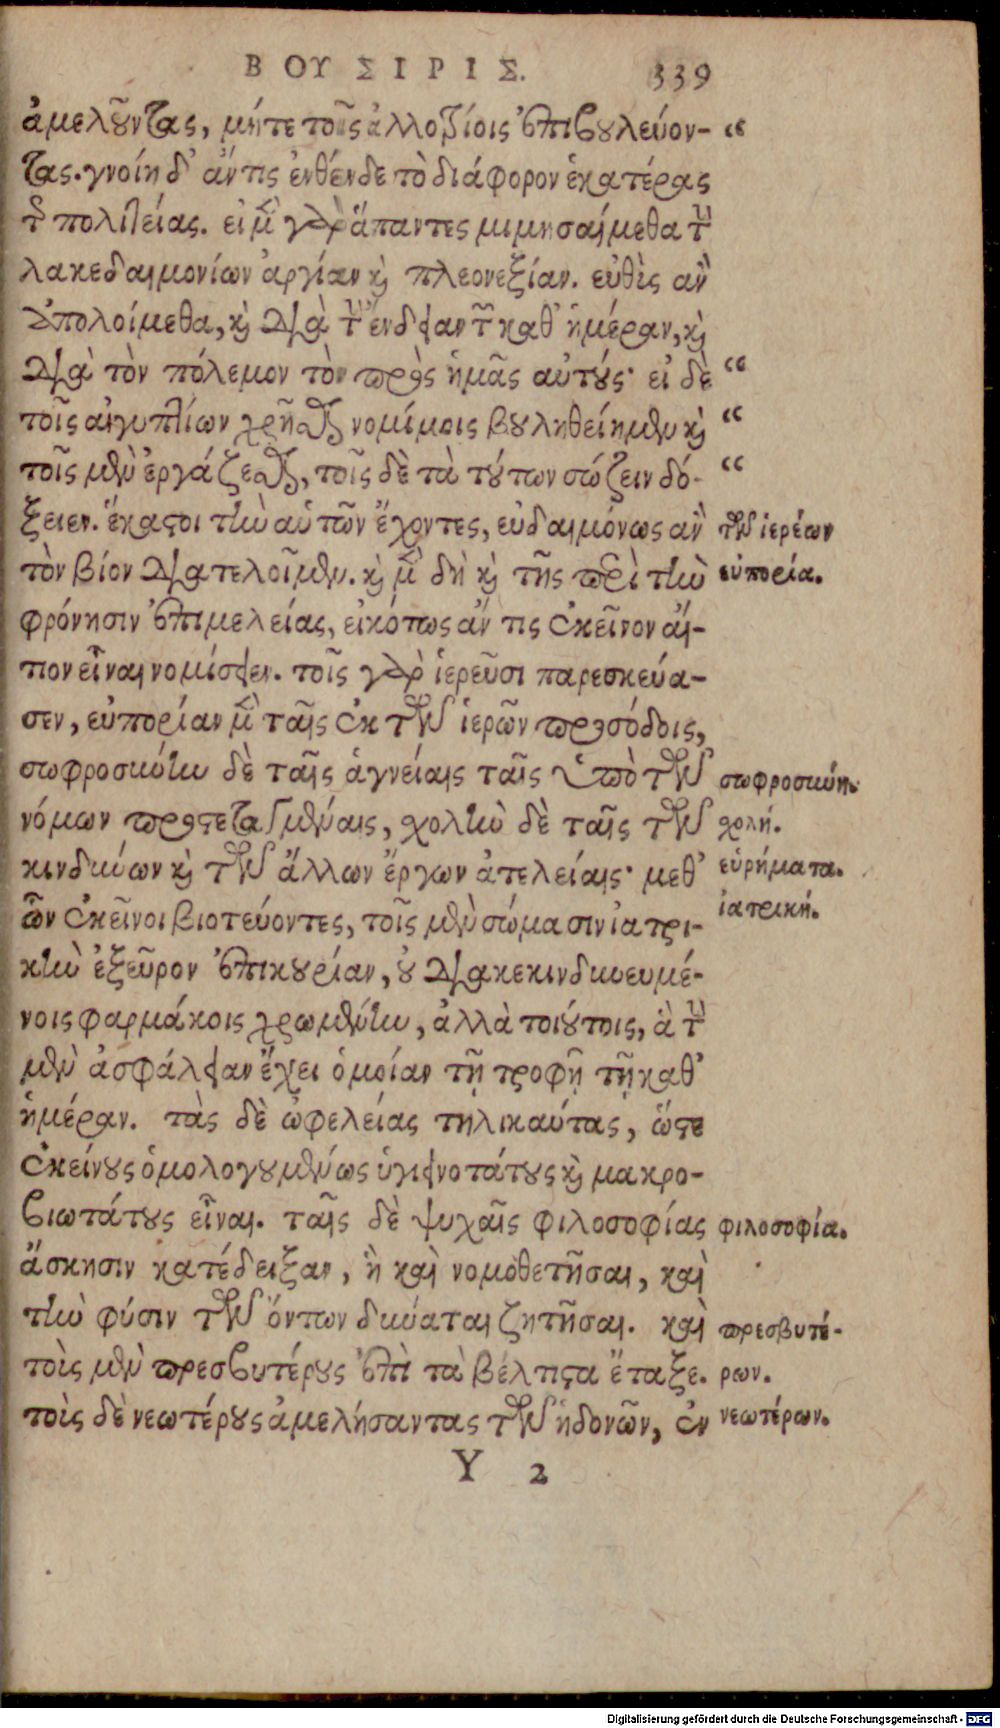 ΒΟΥΣΙΡΙΣ. 339
ἀμελοῦντας, μήτε τοῖς ἀλλοτρίοις ἐπιβουλεύον- “
τας. γνοίη δ' ἄν τις ἐνθένδε τὸ διάφορον ἑκατέρας
τῆς πολιτείας. εἰ μὲν γὰρ ἅπαντες μιμησαίμεθα τὴν
λακεδαιμονίων ἀργίαν καὶ πλεονεξίαν. εὐθὺς ἂν
ἀπολοίμεθα, καὶ διὰ τὴν ἔνδειαν τῶν καθ' ἡμέραν, καὶ
διὰ τὸν πόλεμον τὸν πρὸς ἡμᾶς αὐτούς· εἰ δὲ “
τοῖς αἰγυπτίων χρῆσθαι νομίμοις βουληθείημεν καὶ “
τοῖς μὲν ἐργάζεσθαι, τοῖς δὲ τὰ τούτων σώζειν δό- “
ξειεν. ἕκαστοι τὴν αὑτῶν ἔχοντες, εὐδαιμόνως ἂν τῶν ἱερέων
τὸν βίον διατελοῖμεν. καὶ μὲν δὴ καὶ τῆς περὶ τὴν εὐπορία.
φρόνησιν ἐπιμελείας, εἰκότως ἄν τις ἐκεῖνον αἴ-
τιον εἶναι νομίσειεν. τοῖς γὰρ ἱερεῦσι παρεσκεύα-
σεν, εὐπορίαν μὲν ταῖς ἐκ τῶν ἱερῶν προσόδοις,
σωφροσύνην δὲ ταῖς ἁγνείαις ταῖς ὑπὸ τῶν σωφροσύνη.
νόμων προστεταγμέναις, σχολὴν δὲ ταῖς τῶν σχολή.
κινδύνων καὶ τῶν ἄλλων ἔργων ἀτελείαις· μεθ' εὑρήματα.
ὧν ἐκεῖνοι βιοτεύοντες, τοῖς μὲν σώμασιν ἰατρι- ἰατρική.
κὴν ἐξεῦρον ἐπικουρίαν, οὐ διακεκινδυνευμέ-
νοις φαρμάκοις χρωμένην, ἀλλὰ τοιούτοις, ἃ τὴν
μὲν ἀσφάλειαν ἔχει ὁμοίαν τῇ τροφῇ τῇ καθ'
ἡμέραν. τὰς δὲ ὠφελείας τηλικαύτας, ὥστε
ἐκείνους ὁμολογουμένως ὑγιεινοτάτους καὶ μακρο-
βιωτάτους εἶναι. ταῖς δὲ ψυχαῖς φιλοσοφίας φιλοσοφία.
ἄσκησιν κατέδειξαν, ἣ καὶ νομοθετῆσαι, καὶ
τὴν φύσιν τῶν ὄντων δύναται ζητῆσαι. καὶ πρεσβυτέ-
τοὺς μὲν πρεσβυτέρους ἐπὶ τὰ βέλτιστα ἔταξε. ρων.
τοὺς δὲ νεωτέρους ἀμελήσαντας τῶν ἡδονῶν, ἐν νεωτέρων.
Y 2
Digitalisierung gefördert durch die Deutsche Forschungsgemeinschaft - DFG